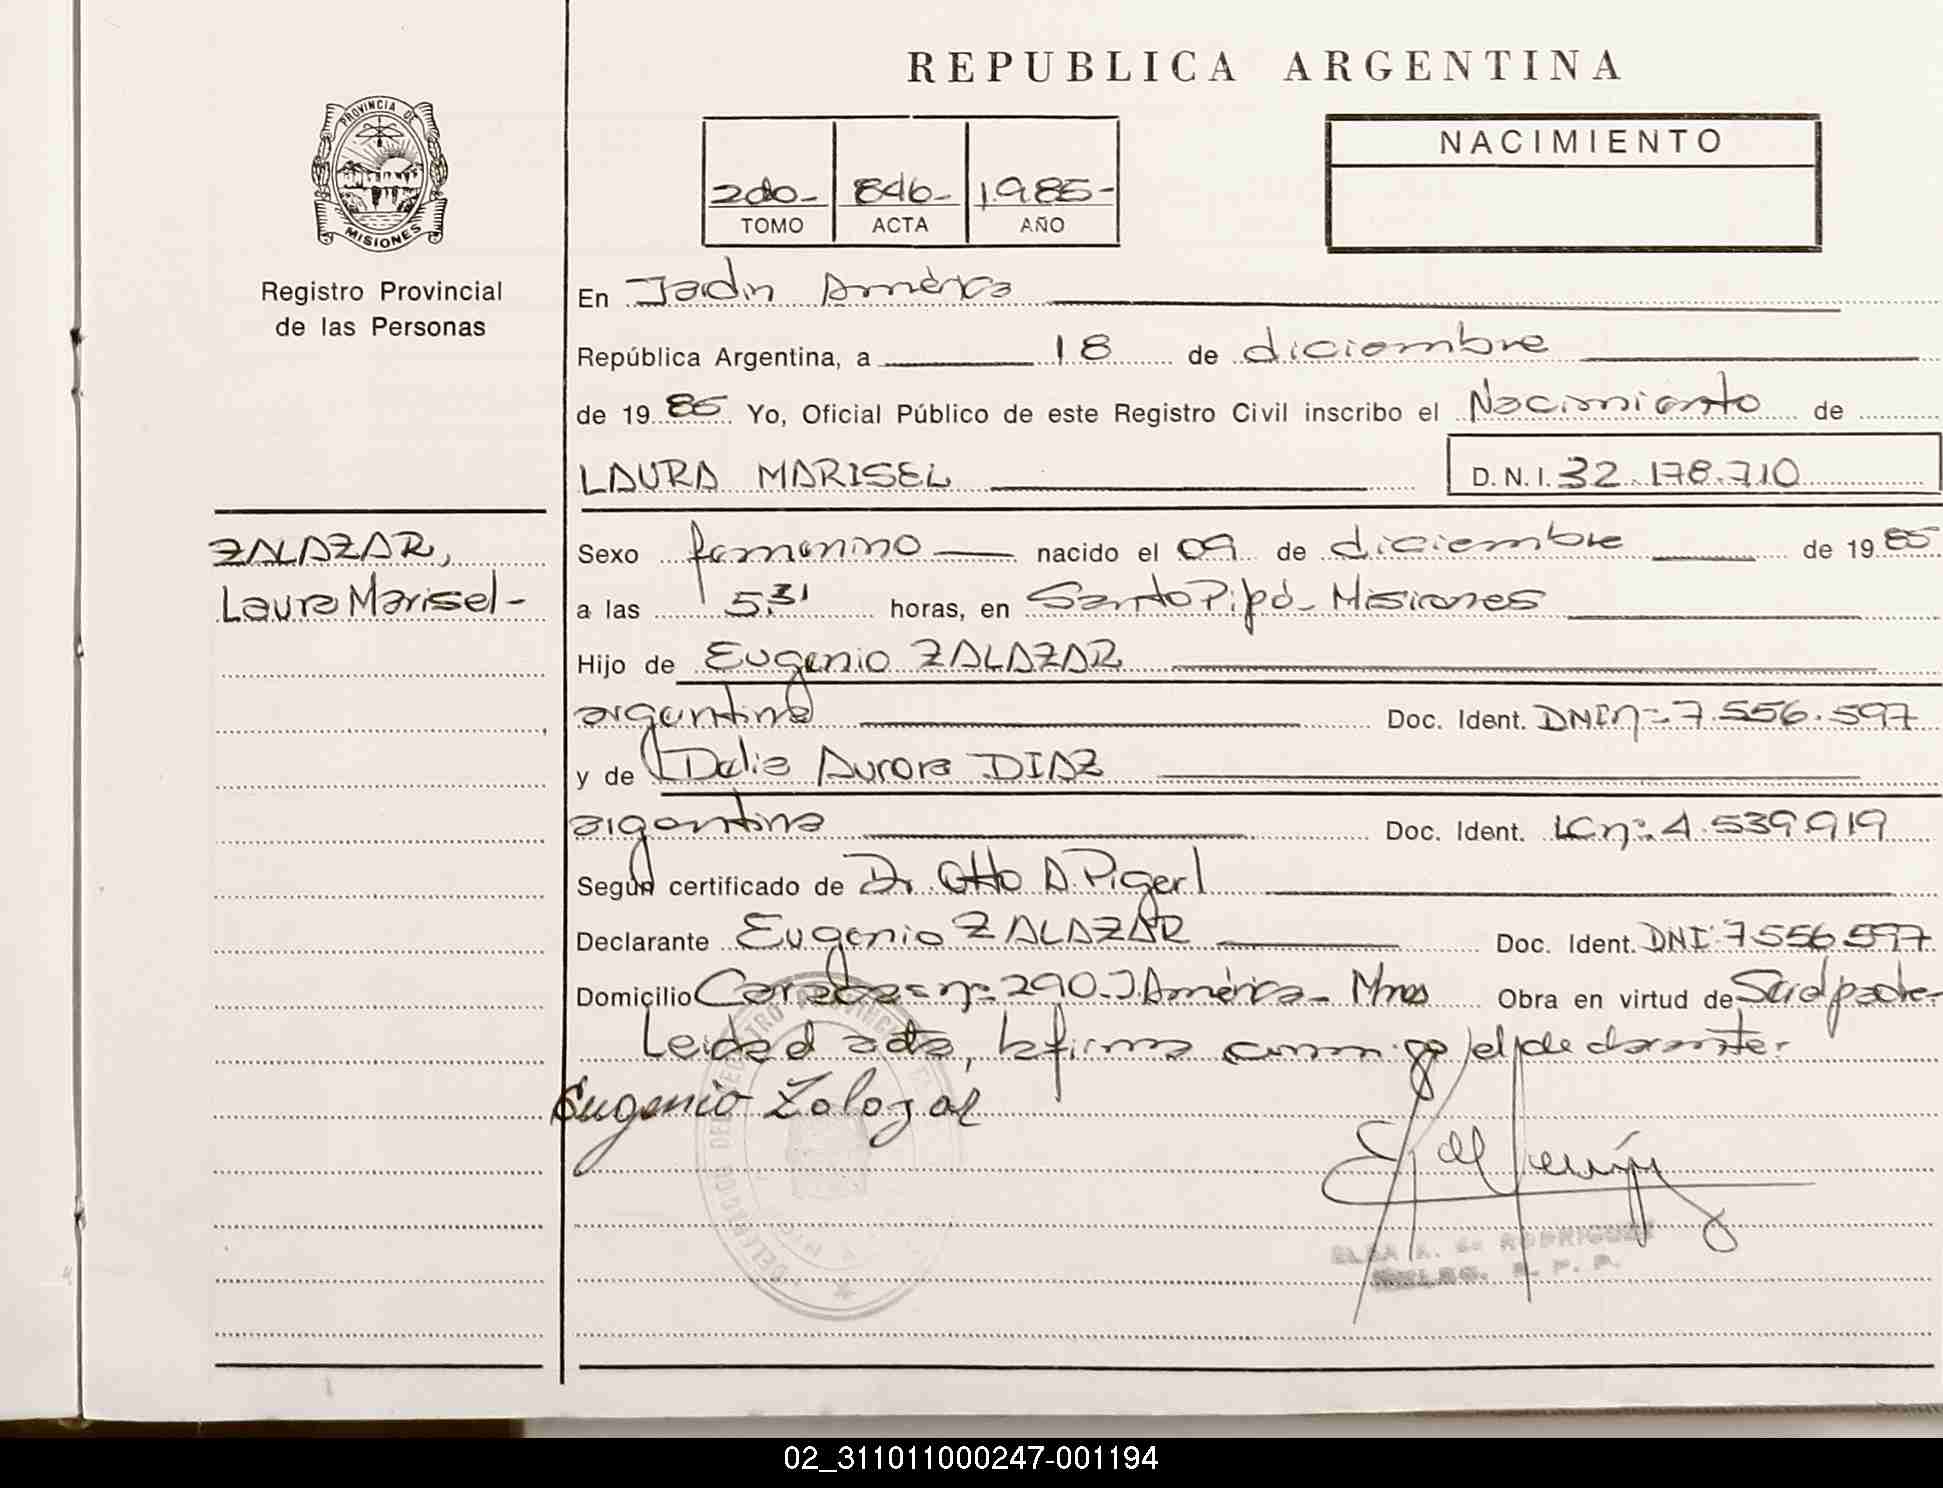 REPUBLICA ARGENTINA
PROVINCIA DE
MISIONES
Registro Provincial
de las Personas
2do- 846- 1.985-
TOMO ACTA AÑO
NACIMIENTO
En Jardin América
República Argentina, a 18 de diciembre
de 19 85 Yo, Oficial Público de este Registro Civil inscribo el Nacimiento de
LAURA MARISEL D.N.I. 32.178.710
ZALAZAR,
Laura Marisel-
Sexo femenino nacido el 09 de diciembre de 19 85
a las 5,31 horas, en Santo Pipó- Misiones
Hijo de Eugenio ZALAZAR
argentino Doc. Ident. DNI nº 7.556.597
y de Delia Aurora DIAZ
argentina Doc. Ident. LC nº 4.539.919
Según certificado de Dr. Otto A. Pigerl
Declarante Eugenio ZALAZAR Doc. Ident. DNI 7.556.597
Domicilio nº 290- J. América- Mnes Obra en virtud de Ser el padre-
Leida el acta, la firma conmigo el declarante.
Eugenio Zalazar
ELSA K. de RODRIGUEZ
02_311011000247-001194